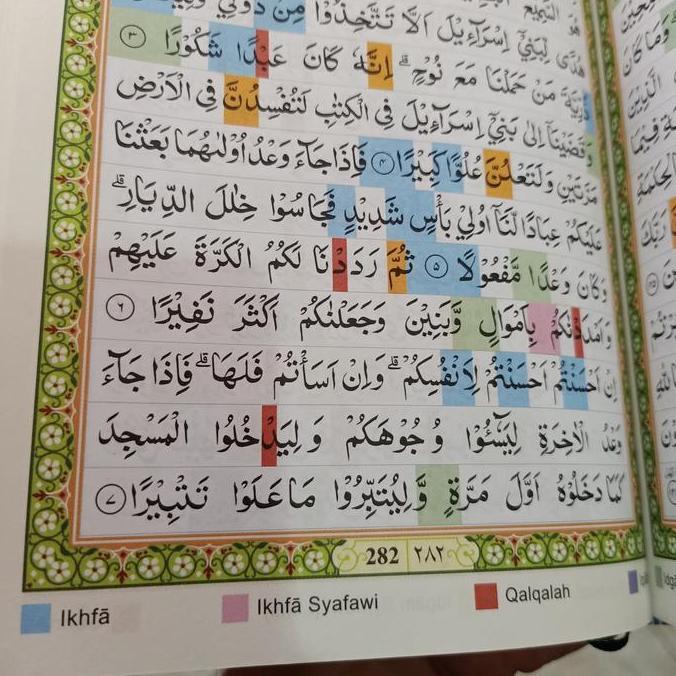 هُدًى لِّبَنِيْٓ اِسْرَاۤءِيْلَ اَلَّا تَتَّخِذُوْا مِنْ دُوْنِيْ
ذُرِّيَّةَ مَنْ حَمَلْنَا مَعَ نُوْحٍۗ اِنَّهٗ كَانَ عَبْدًا شَكُوْرًا ٣
وَقَضَيْنَآ اِلٰى بَنِيْٓ اِسْرَاۤءِيْلَ فِى الْكِتٰبِ لَتُفْسِدُنَّ فِى الْاَرْضِ
مَرَّتَيْنِ وَلَتَعْلُنَّ عُلُوًّا كَبِيْرًا ٤ فَاِذَا جَاۤءَ وَعْدُ اُوْلٰىهُمَا بَعَثْنَا
عَلَيْكُمْ عِبَادًا لَّنَآ اُولِيْ بَأْسٍ شَدِيْدٍ فَجَاسُوْا خِلٰلَ الدِّيَارِۗ
وَكَانَ وَعْدًا مَّفْعُوْلًا ٥ ثُمَّ رَدَدْنَا لَكُمُ الْكَرَّةَ عَلَيْهِمْ
وَاَمْدَدْنٰكُمْ بِاَمْوَالٍ وَّبَنِيْنَ وَجَعَلْنٰكُمْ اَكْثَرَ نَفِيْرًا ٦
اِنْ اَحْسَنْتُمْ اَحْسَنْتُمْ لِاَنْفُسِكُمْۗ وَاِنْ اَسَأْتُمْ فَلَهَاۗ فَاِذَا جَاۤءَ
وَعْدُ الْاٰخِرَةِ لِيَسٗۤـُٔوْا وُجُوْهَكُمْ وَلِيَدْخُلُوا الْمَسْجِدَ
كَمَا دَخَلُوْهُ اَوَّلَ مَرَّةٍ وَّلِيُتَبِّرُوْا مَا عَلَوْا تَتْبِيْرًا ٧
282 ٢٨٢
Ikhfā Ikhfā Syafawi Qalqalah